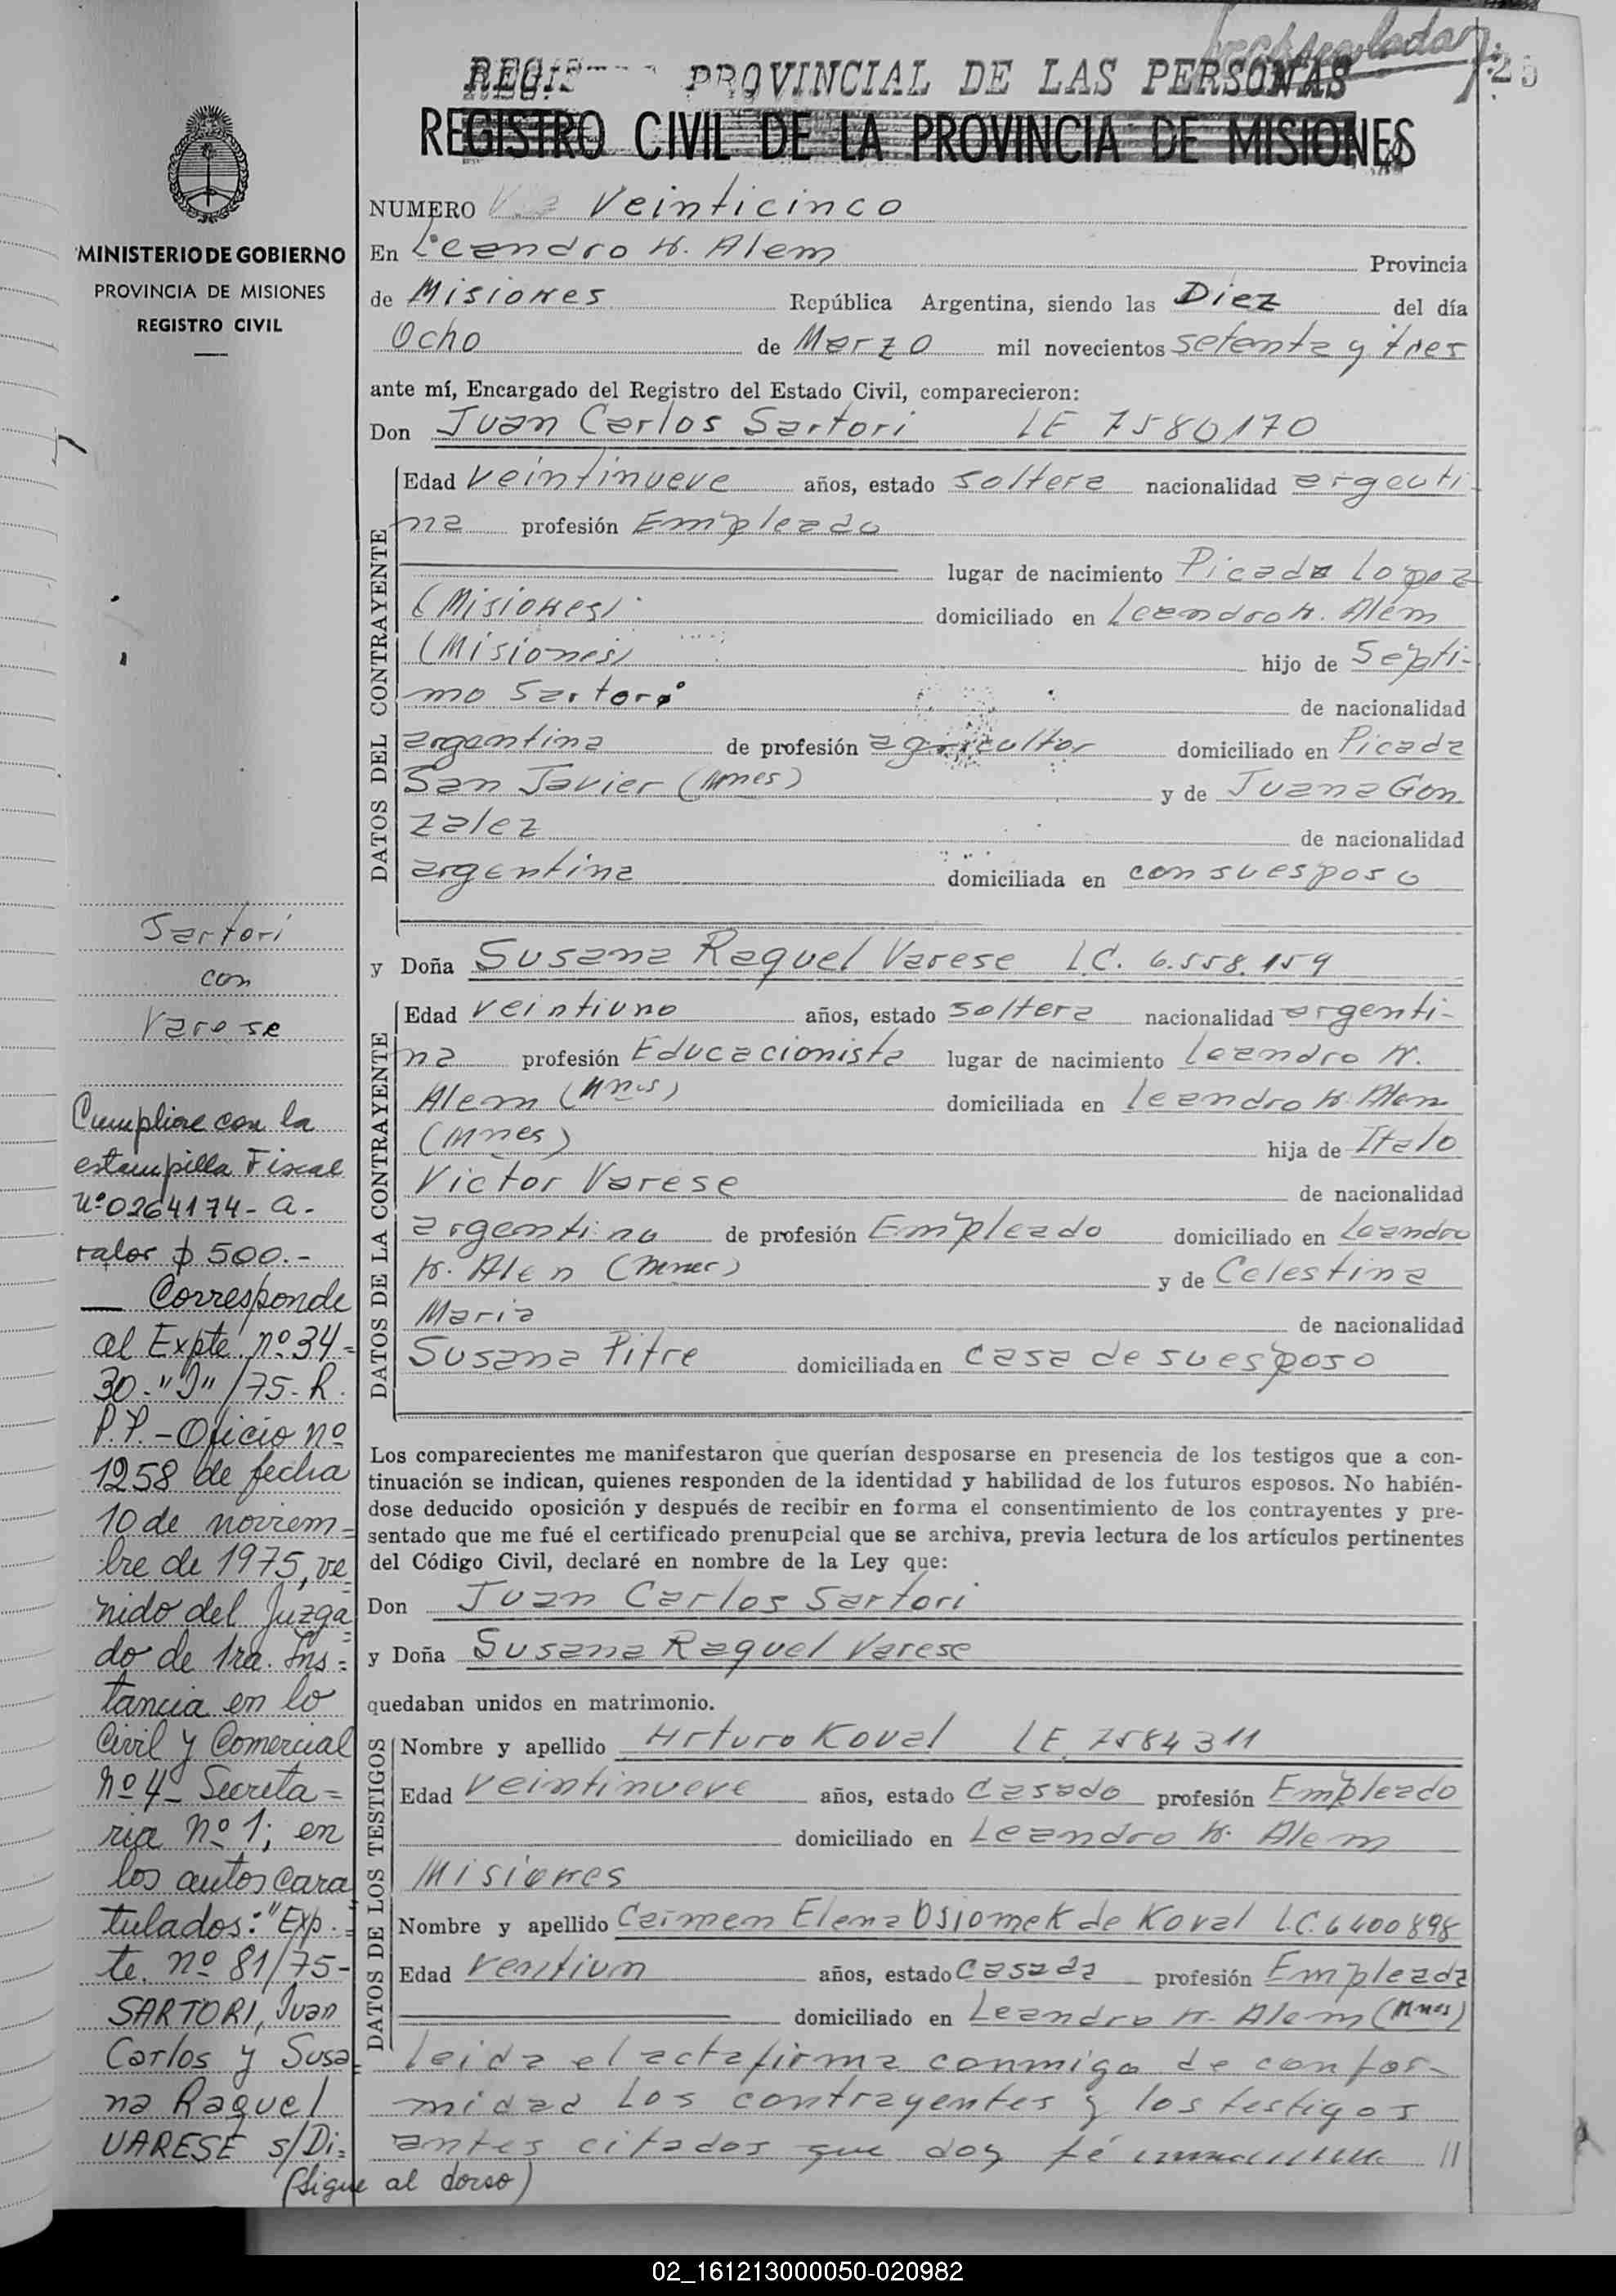 PROVINCIAL DE LAS PERSONAS
REGISTRO CIVIL DE LA PROVINCIA DE MISIONES
MINISTERIO DE GOBIERNO
PROVINCIA DE MISIONES
REGISTRO CIVIL
NUMERO Veinticinco
En Leandro N. Alem Provincia
de Misiones República Argentina, siendo las Diez del día
Ocho de Marzo mil novecientos setenta y tres
ante mí, Encargado del Registro del Estado Civil, comparecieron:
Don Juan Carlos Sartori LE 7580170
DATOS DEL CONTRAYENTE
Edad veintinueve años, estado soltera nacionalidad argenti-
na profesión Empleado
lugar de nacimiento Picada Lopez
(Misiones) domiciliado en Leandro N. Alem
(Misiones) hijo de Septi-
mo Sartori de nacionalidad
argentina de profesión agricultor domiciliado en Picada
San Javier (Mnes) y de Juana Gon
zalez de nacionalidad
argentina domiciliada en con su esposo
y Doña Susana Raquel Varese L.C. 6.558.159
DATOS DE LA CONTRAYENTE
Edad veintiuno años, estado soltera nacionalidad argenti-
na profesión Educacionista lugar de nacimiento Leandro N.
Alem (Mnes) domiciliada en Leandro N. Alem
(Mnes) hija de Italo
Victor Varese de nacionalidad
argentina de profesión Empleado domiciliado en Leandro
N. Alen (Mnes) y de Celestina
Maria de nacionalidad
Susana Pitre domiciliada en casa de su esposo
Los comparecientes me manifestaron que querían desposarse en presencia de los testigos que a con-
tinuación se indican, quienes responden de la identidad y habilidad de los futuros esposos. No habién-
dose deducido oposición y después de recibir en forma el consentimiento de los contrayentes y pre-
sentado que me fué el certificado prenupcial que se archiva, previa lectura de los artículos pertinentes
del Código Civil, declaré en nombre de la Ley que:
Don Juan Carlos Sartori
y Doña Susana Raquel Varese
quedaban unidos en matrimonio.
DATOS DE LOS TESTIGOS
Nombre y apellido Arturo Koval LE 7584311
Edad veintinueve años, estado casado profesión Empleado
domiciliado en Leandro N. Alem
Misiones
Nombre y apellido Carmen Elena Osiomek de Koval L.C. 6400898
Edad ventium años, estado casada profesión Empleada
domiciliado en Leandro N. Alem (Mnes)
leida el acta firma conmigo de confor-
midad los contrayentes y los testigos
antes citados que doy fé //
Sartori
con
Varese
Cumpliose con la
estampilla Fiscal
Nº 0264174-a-
valor $ 500.-
— Corresponde
al Expte. nº 34=
30-"J"/75-R.
P.P.-Oficio nº
1258 de fecha
10 de noviem=
bre de 1975, ve=
nido del Juzga=
do de 1ra. Ins=
tancia en lo
Civil y Comercial
nº 4- Secreta=
ria nº 1; en
los autos cara
tulados: "Exp.=
te. nº 81/75-
SARTORI, Juan
Carlos y Susa=
na Raquel
VARESE s/Di=
(Sigue al dorso)
02_161213000050-020982